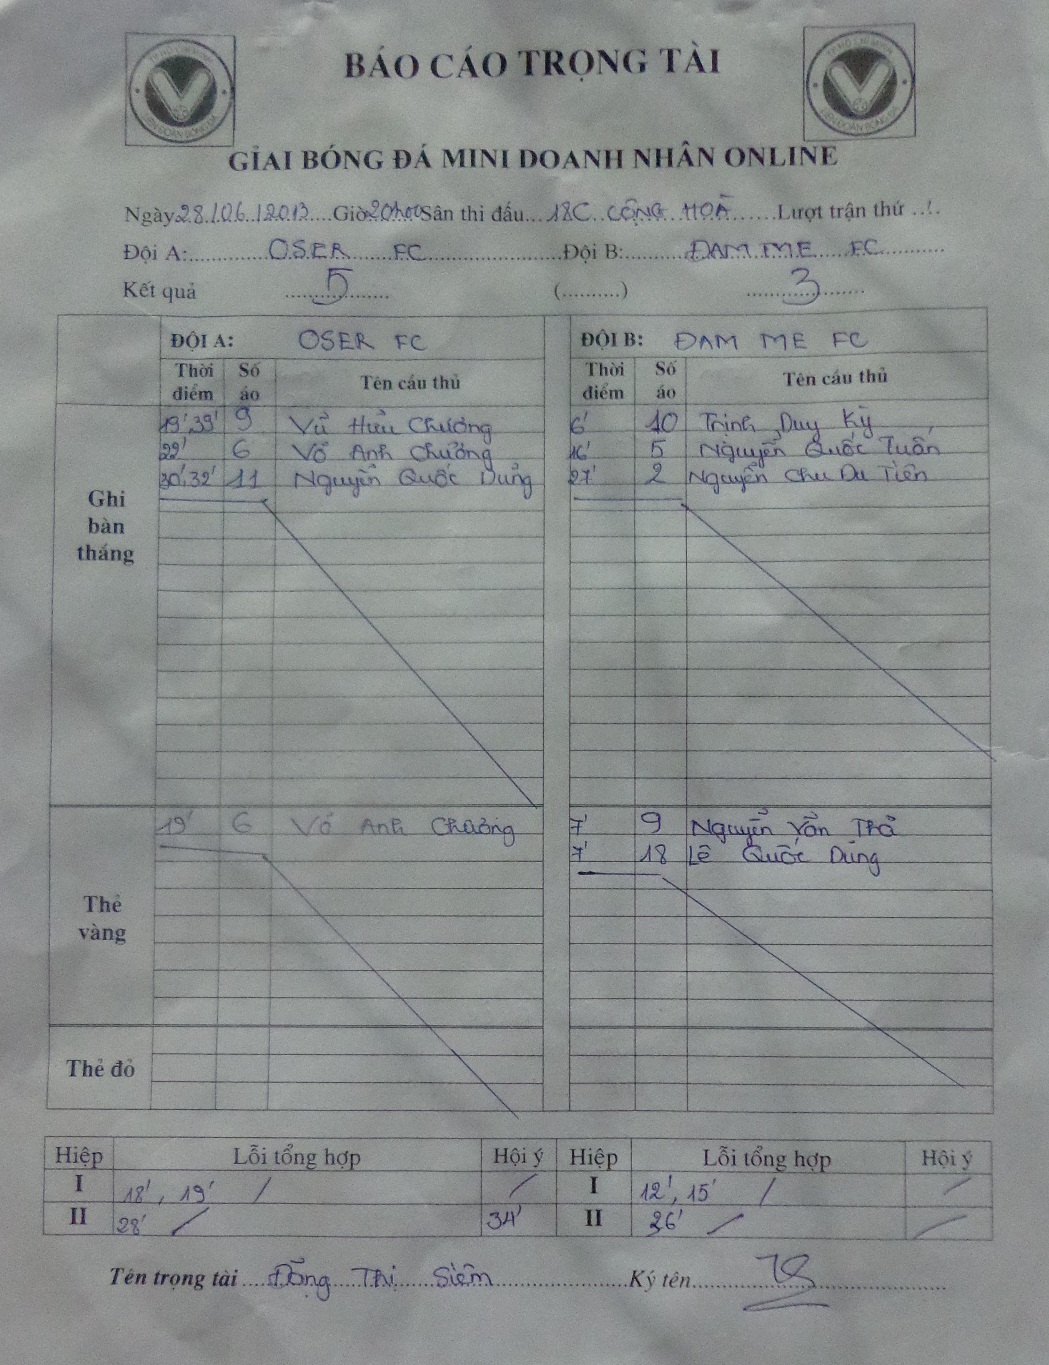 BÁO CÁO TRỌNG TÀI
GIẢI BÓNG ĐÁ MINI DOANH NHÂN ONLINE
Ngày 28/06/2013 Giờ 20h00 Sân thi đấu 18C CỘNG HOÀ Lượt trận thứ 1
Đội A: OSER FC Đội B: ĐAM ME FC
Kết quả 5 (..........) 3
ĐỘI A: OSER FC ĐỘI B: ĐAM ME FC
Thời điểm Số áo Tên cầu thủ Thời điểm Số áo Tên cầu thủ
Ghi bàn thắng
19',39' 9 Vũ Hữu Chương 6' 10 Trịnh Duy Kỳ
22' 6 Võ Anh Chưởng 16' 5 Nguyễn Quốc Tuấn
30',32' 11 Nguyễn Quốc Dũng 27' 2 Nguyễn Chu Du Tiên
Thẻ vàng
19' 6 Võ Anh Chưởng 7' 9 Nguyễn Văn Thả
7' 18 Lê Quốc Dũng
Thẻ đỏ
Hiệp Lỗi tổng hợp Hội ý Hiệp Lỗi tổng hợp Hội ý
I 18', 19' / / I 12', 15' / /
II 28' / 34' II 26' / /
Tên trọng tài Đặng Thị Siêm Ký tên